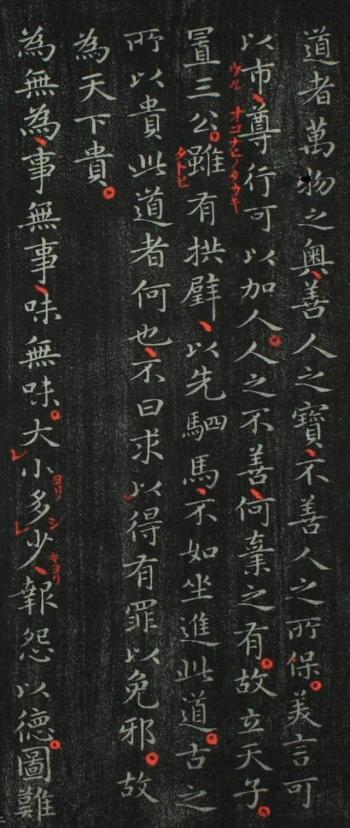 道者萬物之奧、善人之寶、不善人之所保。美言可
以市、尊行可以加人。人之不善、何棄之有。故立天子。
ウル
置三公。雖有拱璧、以先駟馬、不如坐進此道。古之
タトヒ
所以貴此道者何也、不曰求以得有罪以免邪。故
為天下貴。
為無為、事無事、味無味。大小多少、報怨以德。圖難